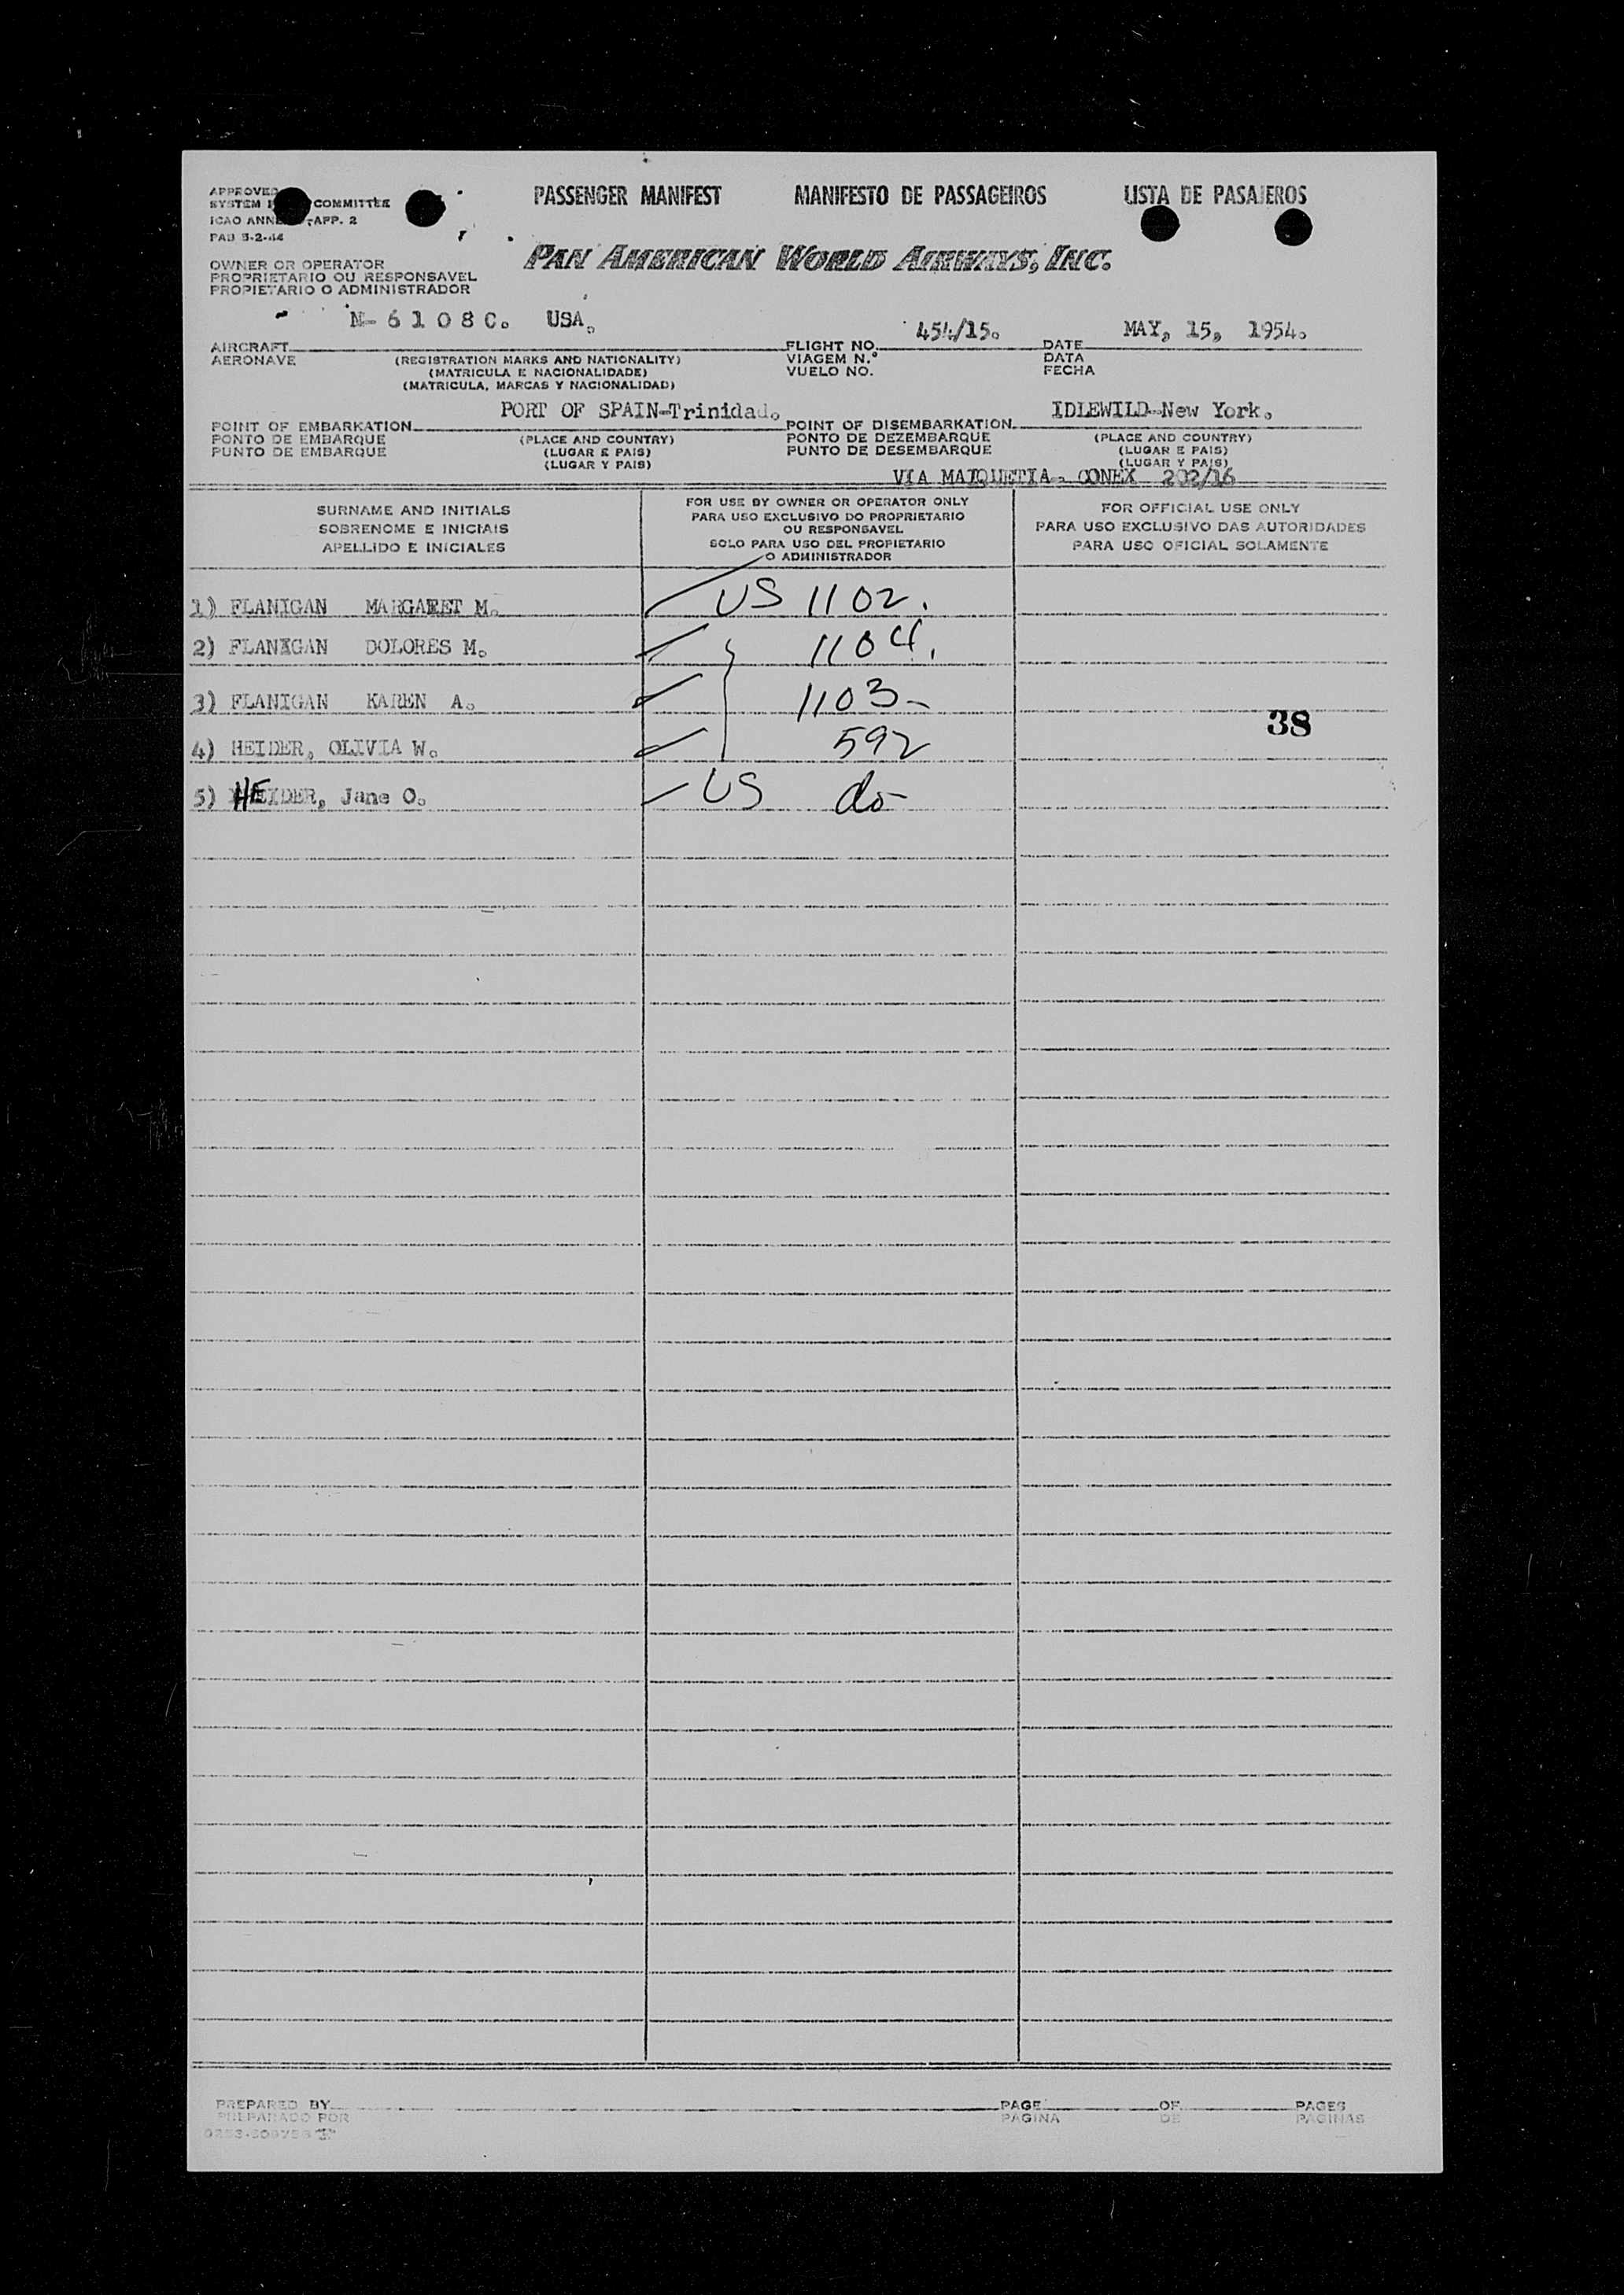 PASSENGER MANIFEST MANIFESTO DE PASSAGEIROS LISTA DE PASAJEROS
APPROVED
SYSTEM COMMITTEE
ICAO ANNE -APP. 2
PAD 3-2-44
PAN AMERICAN WORLD AIRWAYS, INC.
OWNER OR OPERATOR
PROPRIETARIO OU RESPONSAVEL
PROPIETARIO O ADMINISTRADOR
N-6108C. USA. 454/15. MAY, 15, 1954.
AIRCRAFT FLIGHT NO. DATE
AERONAVE (REGISTRATION MARKS AND NATIONALITY) VIAGEM N.º DATA
(MATRICULA E NACIONALIDADE) VUELO NO. FECHA
(MATRICULA, MARCAS Y NACIONALIDAD)
PORT OF SPAIN-Trinidad. IDLEWILD-New York.
POINT OF EMBARKATION POINT OF DISEMBARKATION
PONTO DE EMBARQUE (PLACE AND COUNTRY) PONTO DE DEZEMBARQUE (PLACE AND COUNTRY)
PUNTO DE EMBARQUE (LUGAR E PAIS) PUNTO DE DESEMBARQUE (LUGAR E PAIS)
(LUGAR Y PAIS) (LUGAR Y PAIS)
VIA MAIQUETIA- CONEX 202/16
SURNAME AND INITIALS
SOBRENOME E INICIAIS
APELLIDO E INICIALES
FOR USE BY OWNER OR OPERATOR ONLY
PARA USO EXCLUSIVO DO PROPRIETARIO
OU RESPONSAVEL
SOLO PARA USO DEL PROPIETARIO
O ADMINISTRADOR
FOR OFFICIAL USE ONLY
PARA USO EXCLUSIVO DAS AUTORIDADES
PARA USO OFICIAL SOLAMENTE
1) FLANIGAN MARGARET M. US 1102.
2) FLANIGAN DOLORES M. 1104.
3) FLANIGAN KAREN A. 1103-
38
4) HEIDER, OLIVIA W. 592
5) HEIDER, Jane O. US do-
PREPARED BY PAGE OF PAGES
PREPARADO POR PAGINA DE PAGINAS